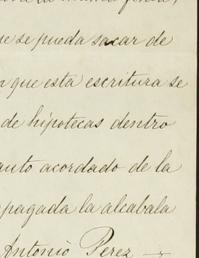 se pueda sacar de
que esta escritura se
de hipotecas dentro
auto acordado de la
pagada la alcabala
Antonio Perez